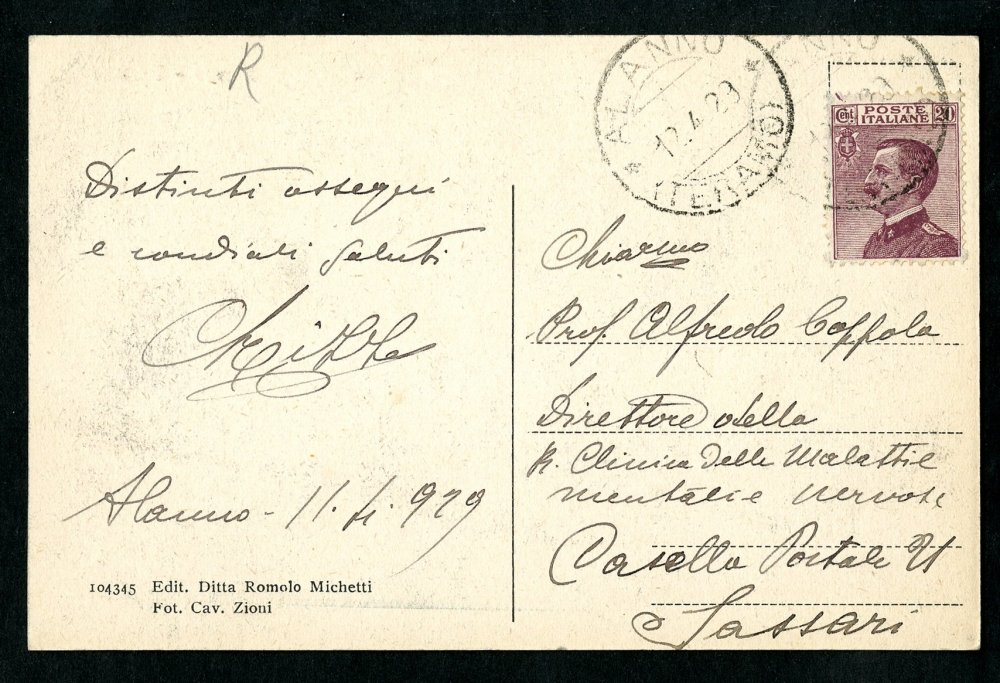 R
Distinti ossequi
e cordiali saluti
Alanno - 11.4.929
104345 Edit. Ditta Romolo Michetti
Fot. Cav. Zioni
ALANNO
12.4.29
(TERAMO)
ANNO
POSTE
ITALIANE
Cent 20
Chiarmo
Prof. Alfredo Coppola
Direttore della
R. Clinica delle Malattie
mentali e nervose
Casella Postale
Sassari